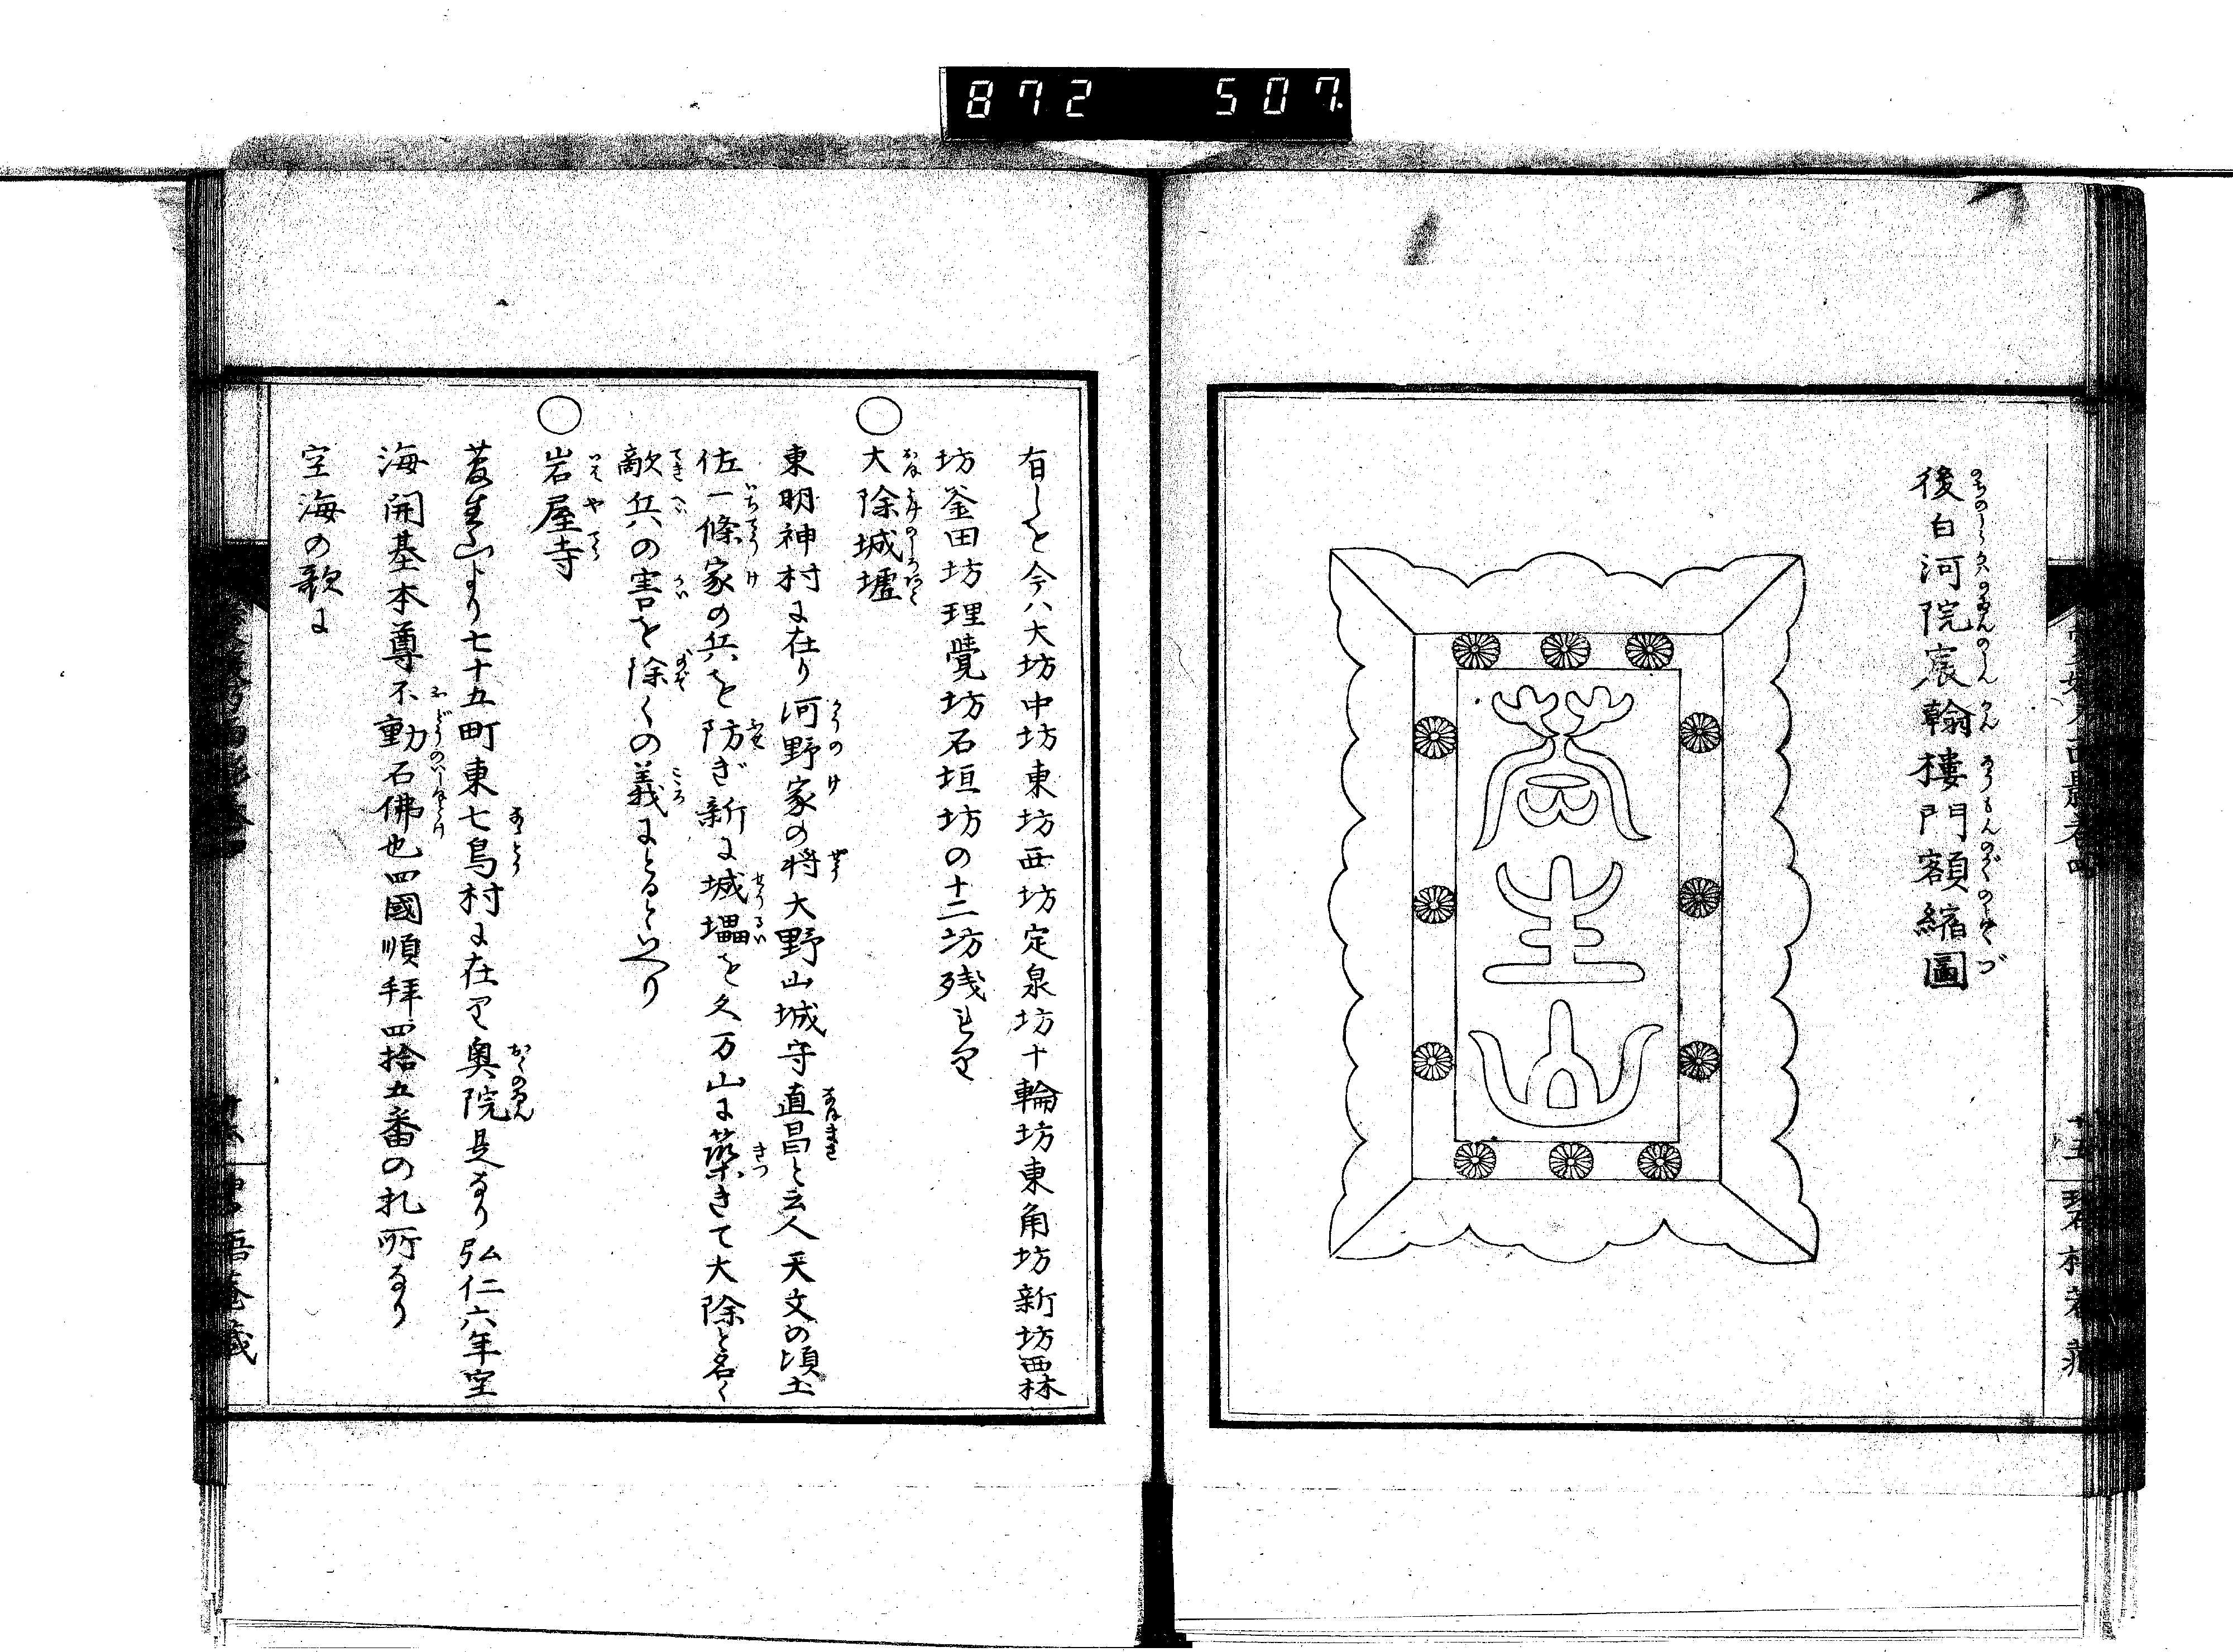 872 507
後白河院宸翰樓門額縮圖
菅生山
有しを今ハ大坊中坊東坊西坊定泉坊十輪坊東角坊新坊西林
坊釜田坊理覺坊石垣坊の十二坊残
大除城墟
東明神村に在り河野家の将大野山城守直昌と云人天文の頃土
佐一條家の兵を防ぎ新に城壘を久万山に築きて大除と名く
敵兵の害を除くの義にとるといへり
岩屋寺
菅生山より七十五町東七鳥村に在り奥院是なり弘仁六年空
海開基本尊不動石佛也四國順拜四拾五番の札所なり
空海の歌に